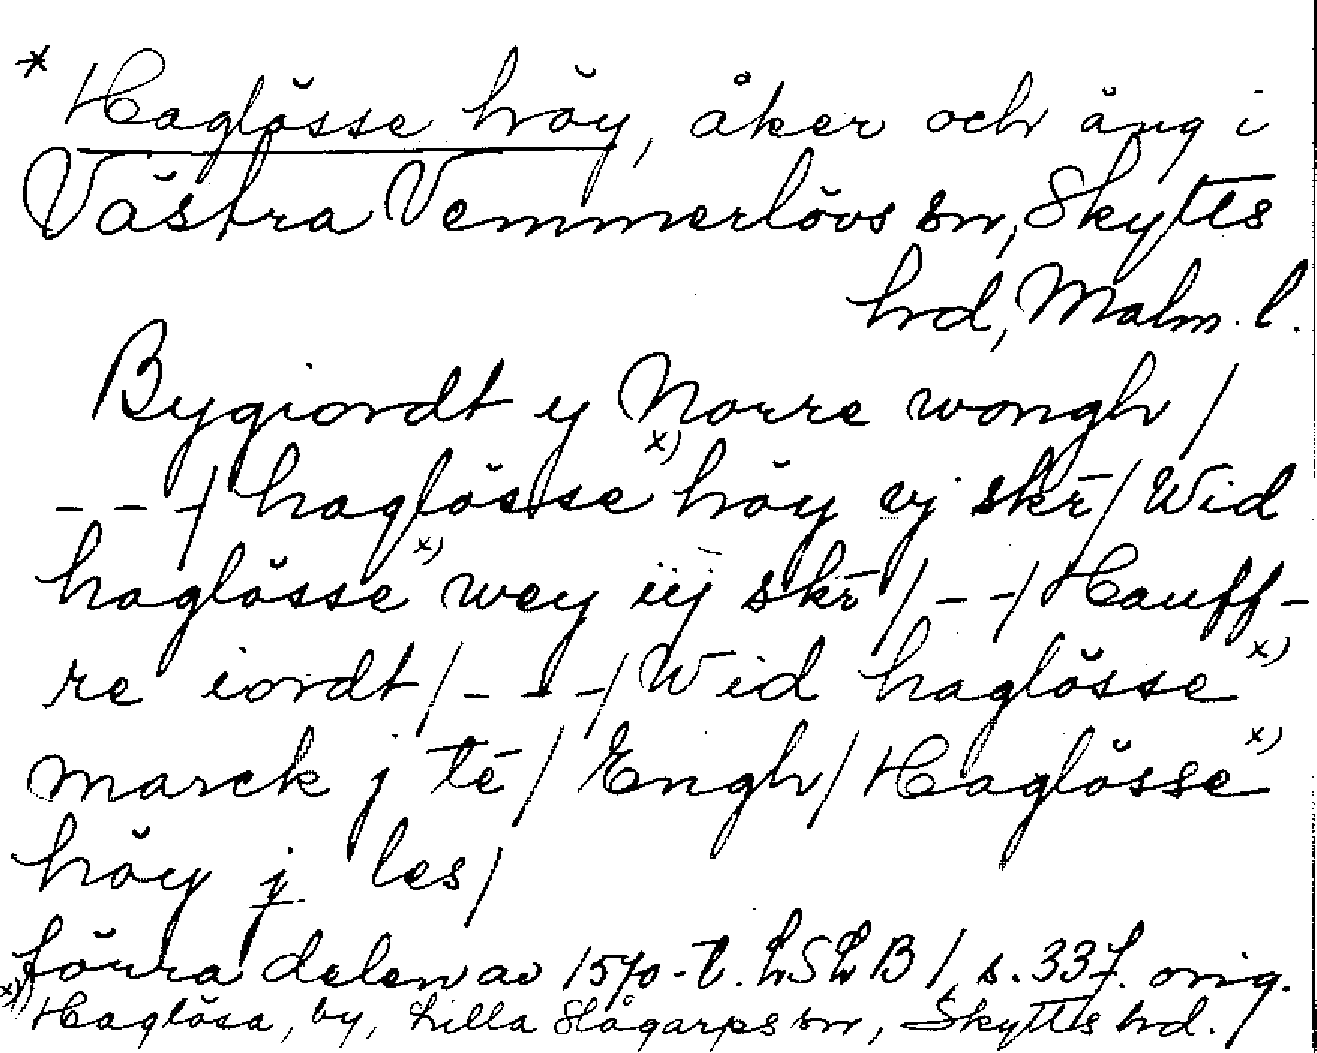 * Haglösse höy, åker och äng i
Västra Vemmerlövs sn, Skytts
hrd, Malm. l.
Bygiordt y Norre wongh /
- - - / haglösse x) höy vj skr̄ / Wid
haglösse x) wey iij skr̄ / - - / Hauff-
re iordt / - - - / Wid haglösse x)
marck j te᷎ / Engh / Haglösse x)
höy j les /
förra delen av 1570-t. LSLB 1, s. 337. orig.
x) Haglösa, by, Lilla Slågarps sn, Skytts hrd. /